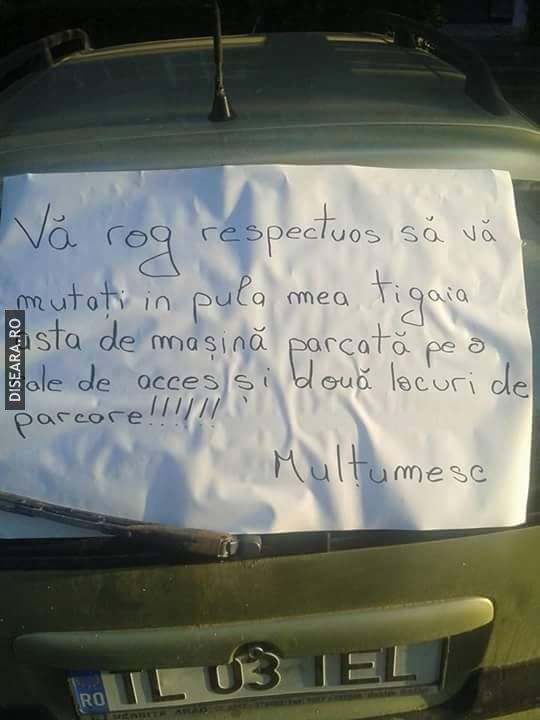 Vă rog respectuos să vă
mutați in pula mea tigaia
asta de mașină parcată pe o
ale de acces și două locuri de
parcare!!!!!!
Mulțumesc
DISEARA.RO
RO TL 03 TEL